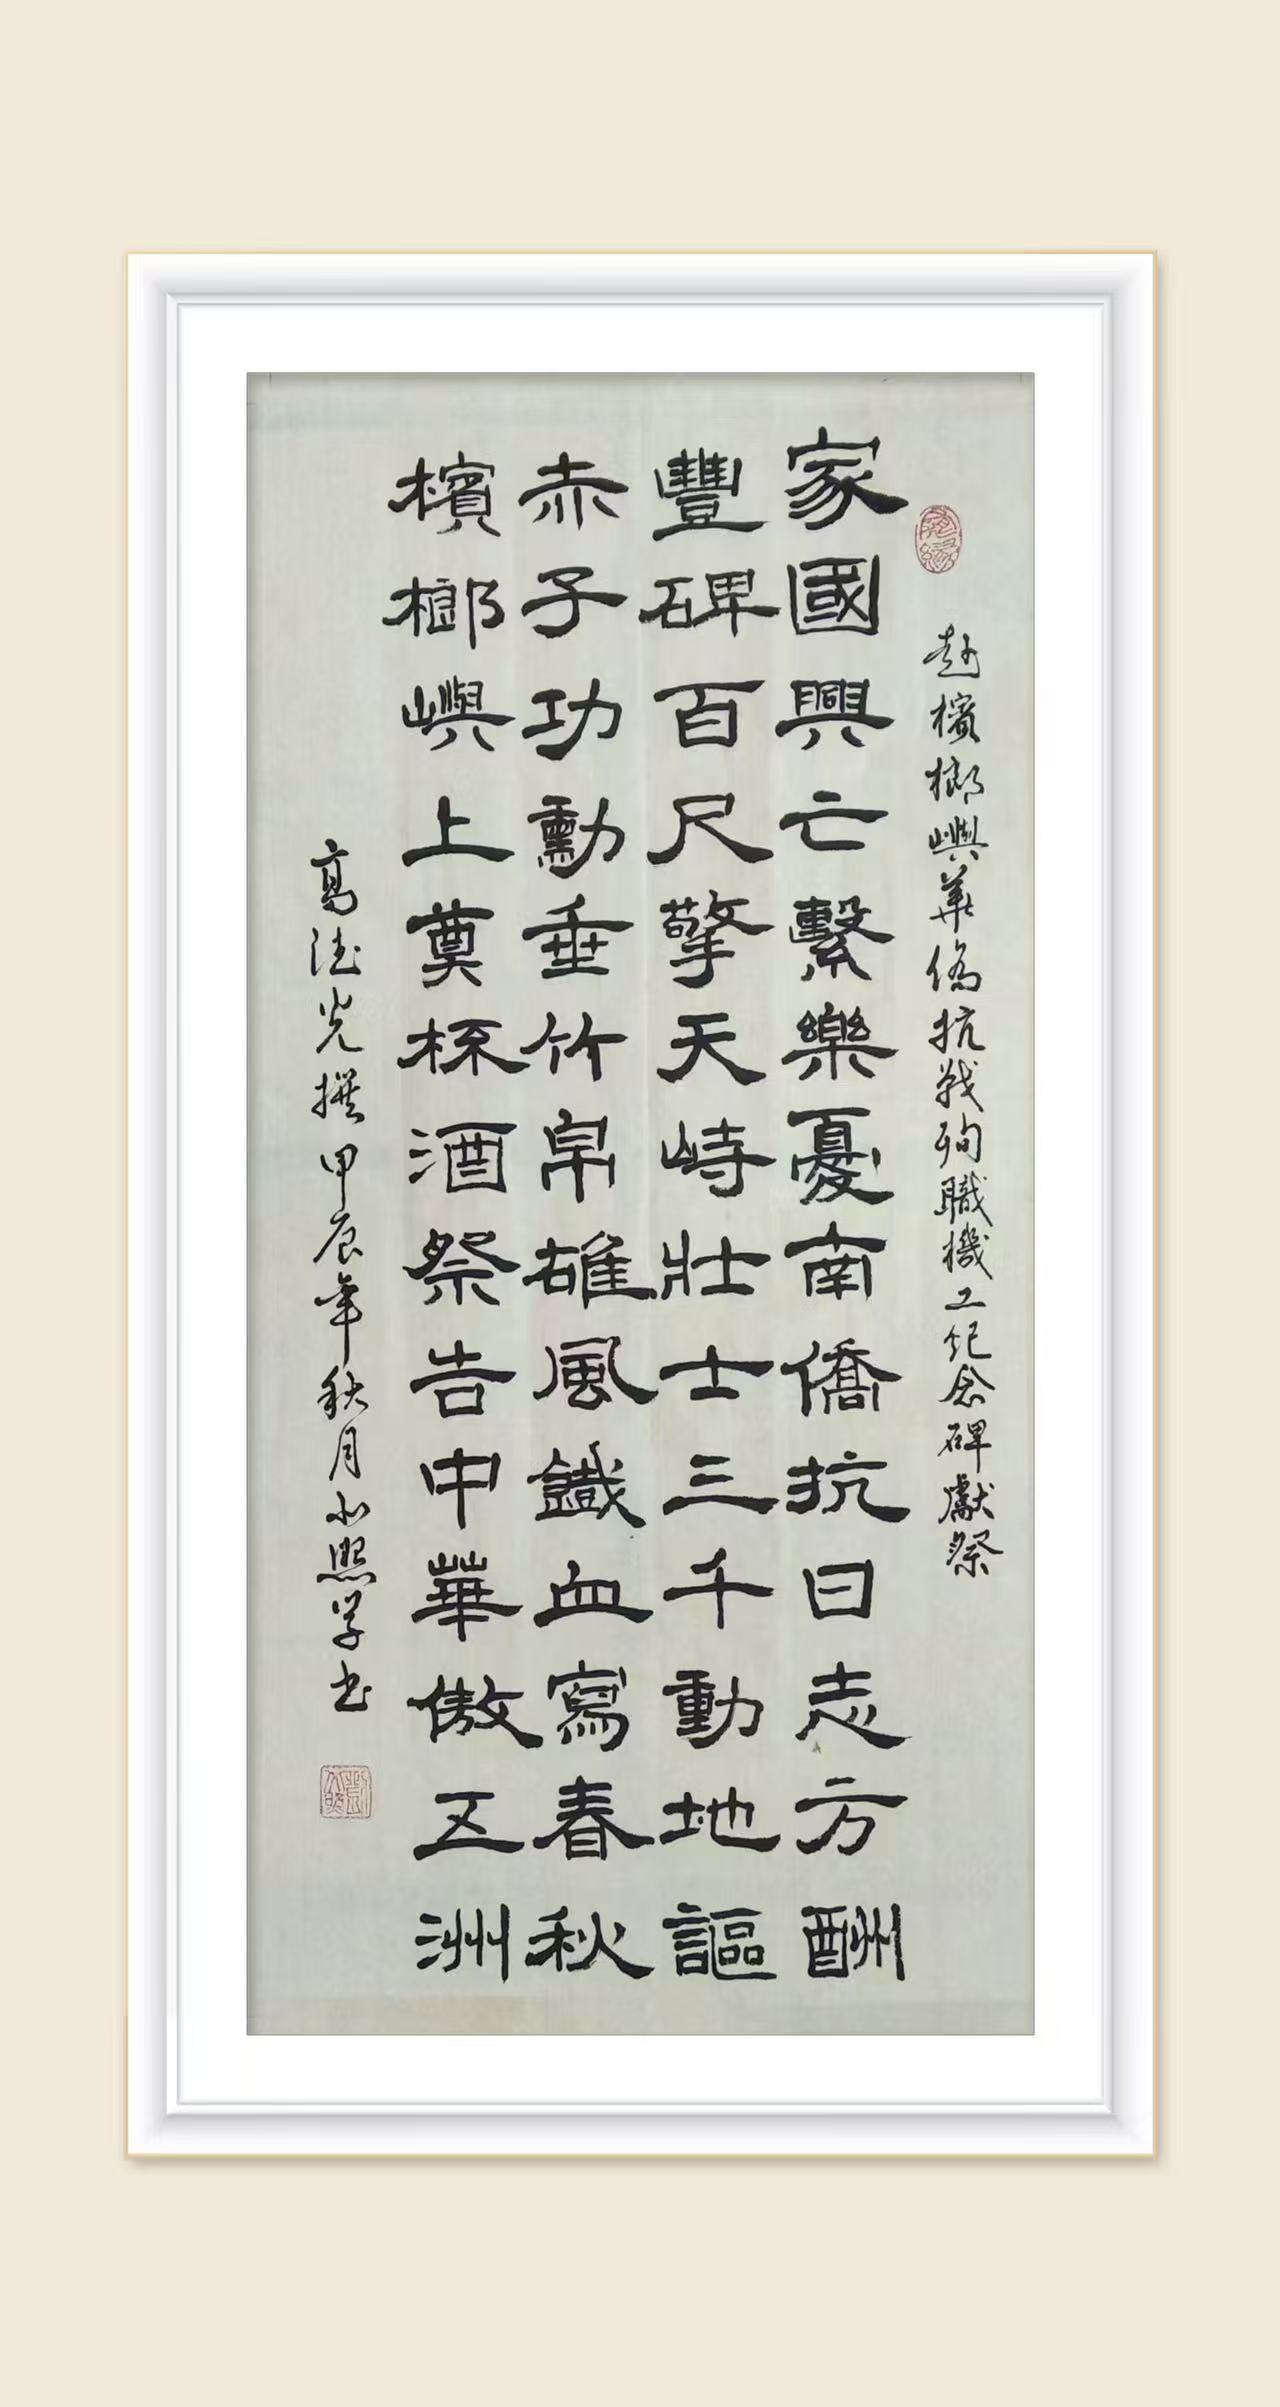 赴檳榔嶼華僑抗戰殉職機工纪念碑獻祭
家國興亡繫樂憂南僑抗日志方酬
豐碑百尺擎天峙壯士三千動地謳
赤子功勳垂竹帛雄風鐵血寫春秋
檳榔嶼上奠杯酒祭告中華傲五洲
高德光撰甲辰年秋月小照学书